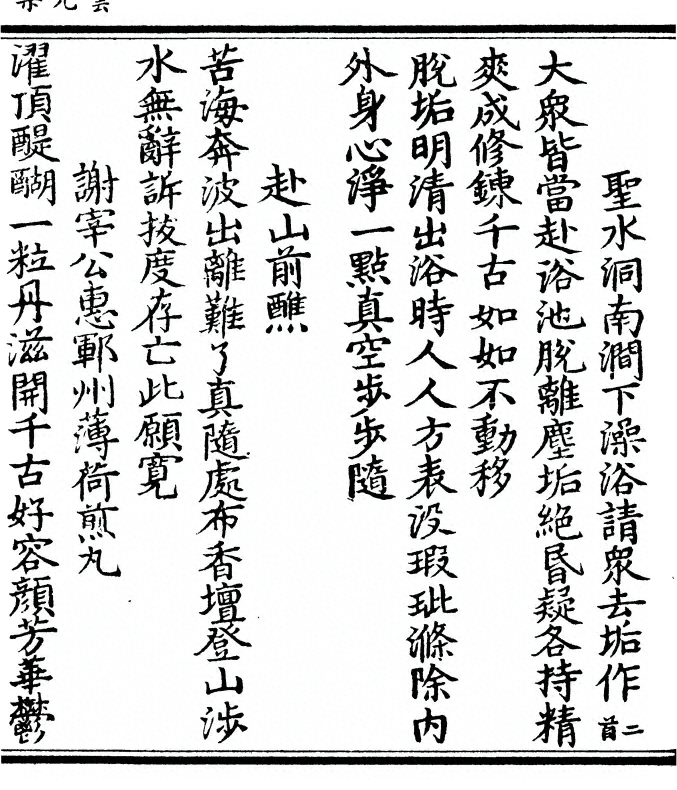 聖水洞南澗下澡浴請衆去垢作二首
大衆皆當赴浴池脫離塵垢絕昏疑各持精
爽成修鍊千古如如不動移
脫垢明清出浴時人人方表没瑕玼滌除内
外身心淨一點真空步步隨
赴山前醮
苦海奔波出離難了真隨處布香壇登山涉
水無辭訴拔度存亡此願寬
謝宰公惠鄆州薄荷煎丸
濯頂醍醐一粒丹滋開千古好容顔芳華鬱